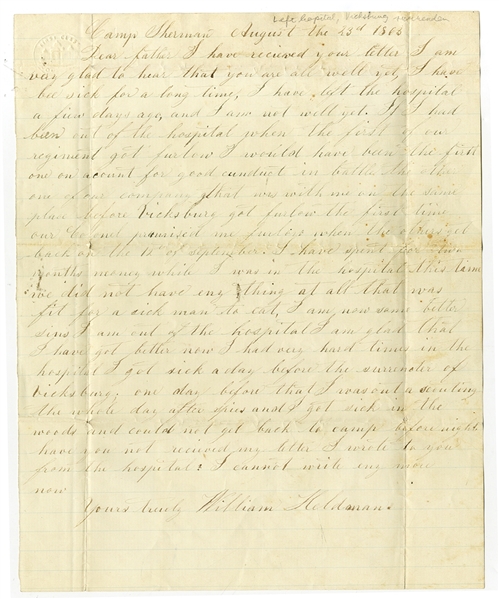 Left hospital, Vicksburg surrender
Camp Sherman August the 23rd 1863
Dear father I have recieved your letter I am
very glad to hear that you are all well yet, I have
bee sick for a long time, I have left the hospital
a fiew days ago, and I am not well yet. If I had
been out of the hospital when the first of our
regiment got furlow I would have been the first
one on acount for good cunduct in battle the oth
one of our company that wos with me in the same
place before Vicksburg got furlow the first time
our colonel promised me furlow when the others get
back on the 15th of September. I have spent for two
months money while I was in the hospital this time
we did not have eny thing at all that was
fit for a sick man to eat, I am now some better
sins I am out of the hospital I am glad that
I have got better now I had very hard times in the
hospital I got sick a day before the surrender of
Vicksburg; one day before that I was out a scouting
the whole day after spies and I got sick in the
woods and could not get back to camp before night
have you not recieved my letter I wrote to you
from the hospital? I cannot write eny more
now
Yours truly William Heldmans